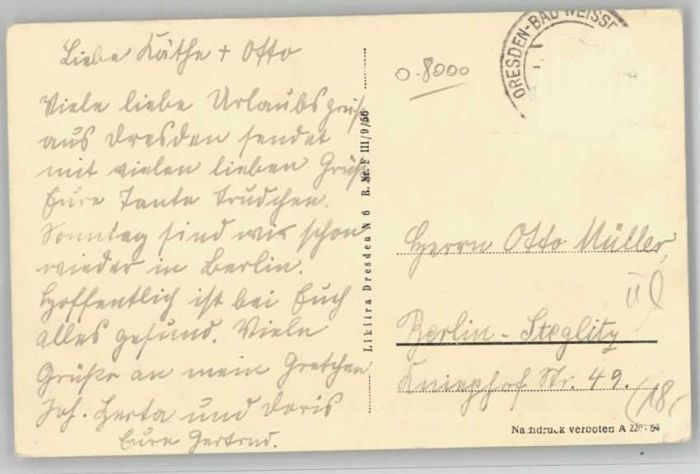 Liebe Käthe + Otto
Viele liebe Urlaubsgrüße
aus Dresden sendet
mit vielen lieben Grüße
Eure Tante Trudchen.
Sonntag sind wir schon
wieder in Berlin.
Hoffentlich ist bei Euch
alles gesund. Viele
Grüße an mein Gretchen
Joh. Herta und Doris
Eure Gertrud.
Likitra Dresden N 6 R. Nr. F III/9/56
DRESDEN-BAD WEISSE
0-8000
Herrn Otto Müller,
Berlin-Steglitz
Kniephof Str. 49.
18,-
Nachdruck verboten A